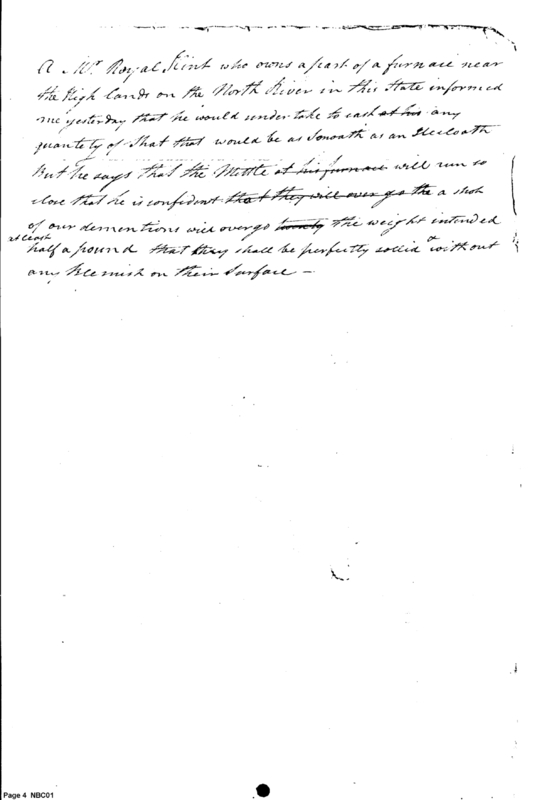 A Mr. Royal Flint who owns a part of a furnace near
the High lands on the North River in this State informed
me yesterday that he would under take to cast at his any
quantity of Shot that would be as Smooth as an
But he says that the Mettle at his furnace will run so
close that he is confident that they will over go the a shot
of our demontions will overgo the weight intended
at least
half a pound that they shall be perfectly sollid & without
any Blemish on their Surface —
Page 4 NBC01